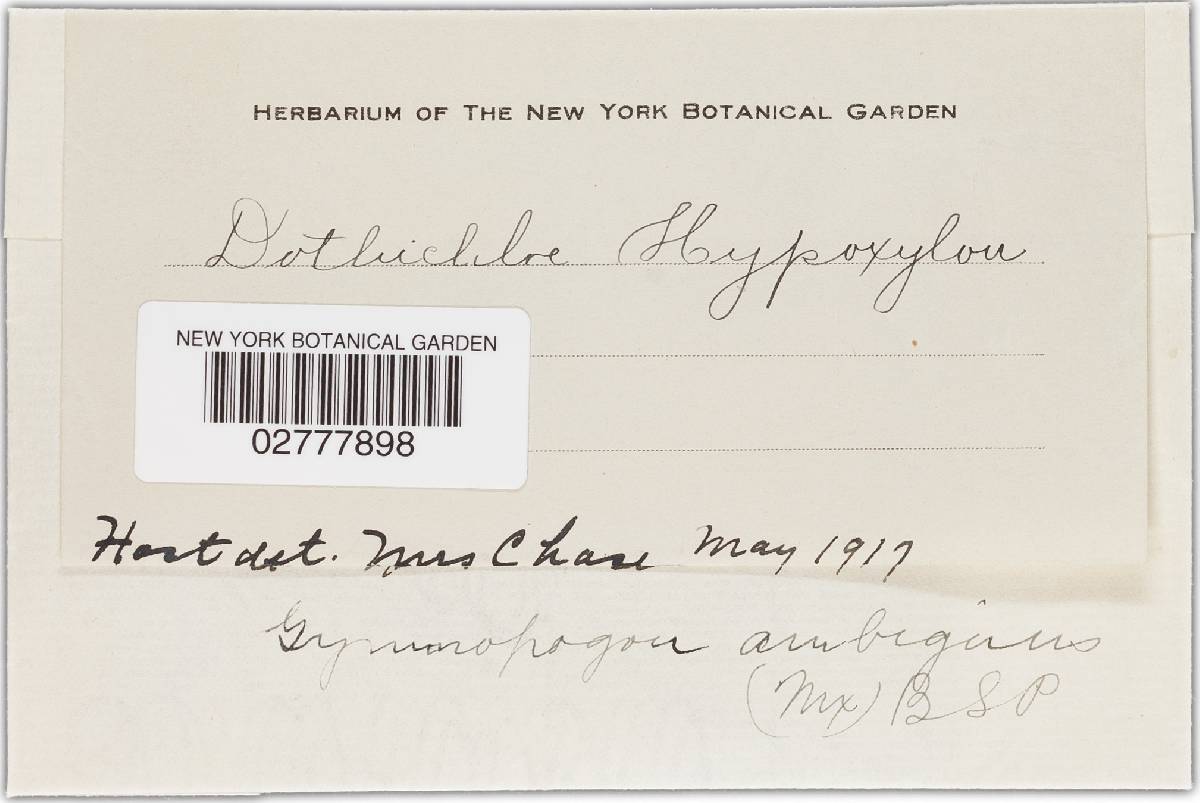 HERBARIUM OF THE NEW YORK BOTANICAL GARDEN
Dothichloe Hypoxylon
NEW YORK BOTANICAL GARDEN
02777898
Host det. Mrs Chase May 1917
Gymnopogon ambiguus
(Mx) BSP